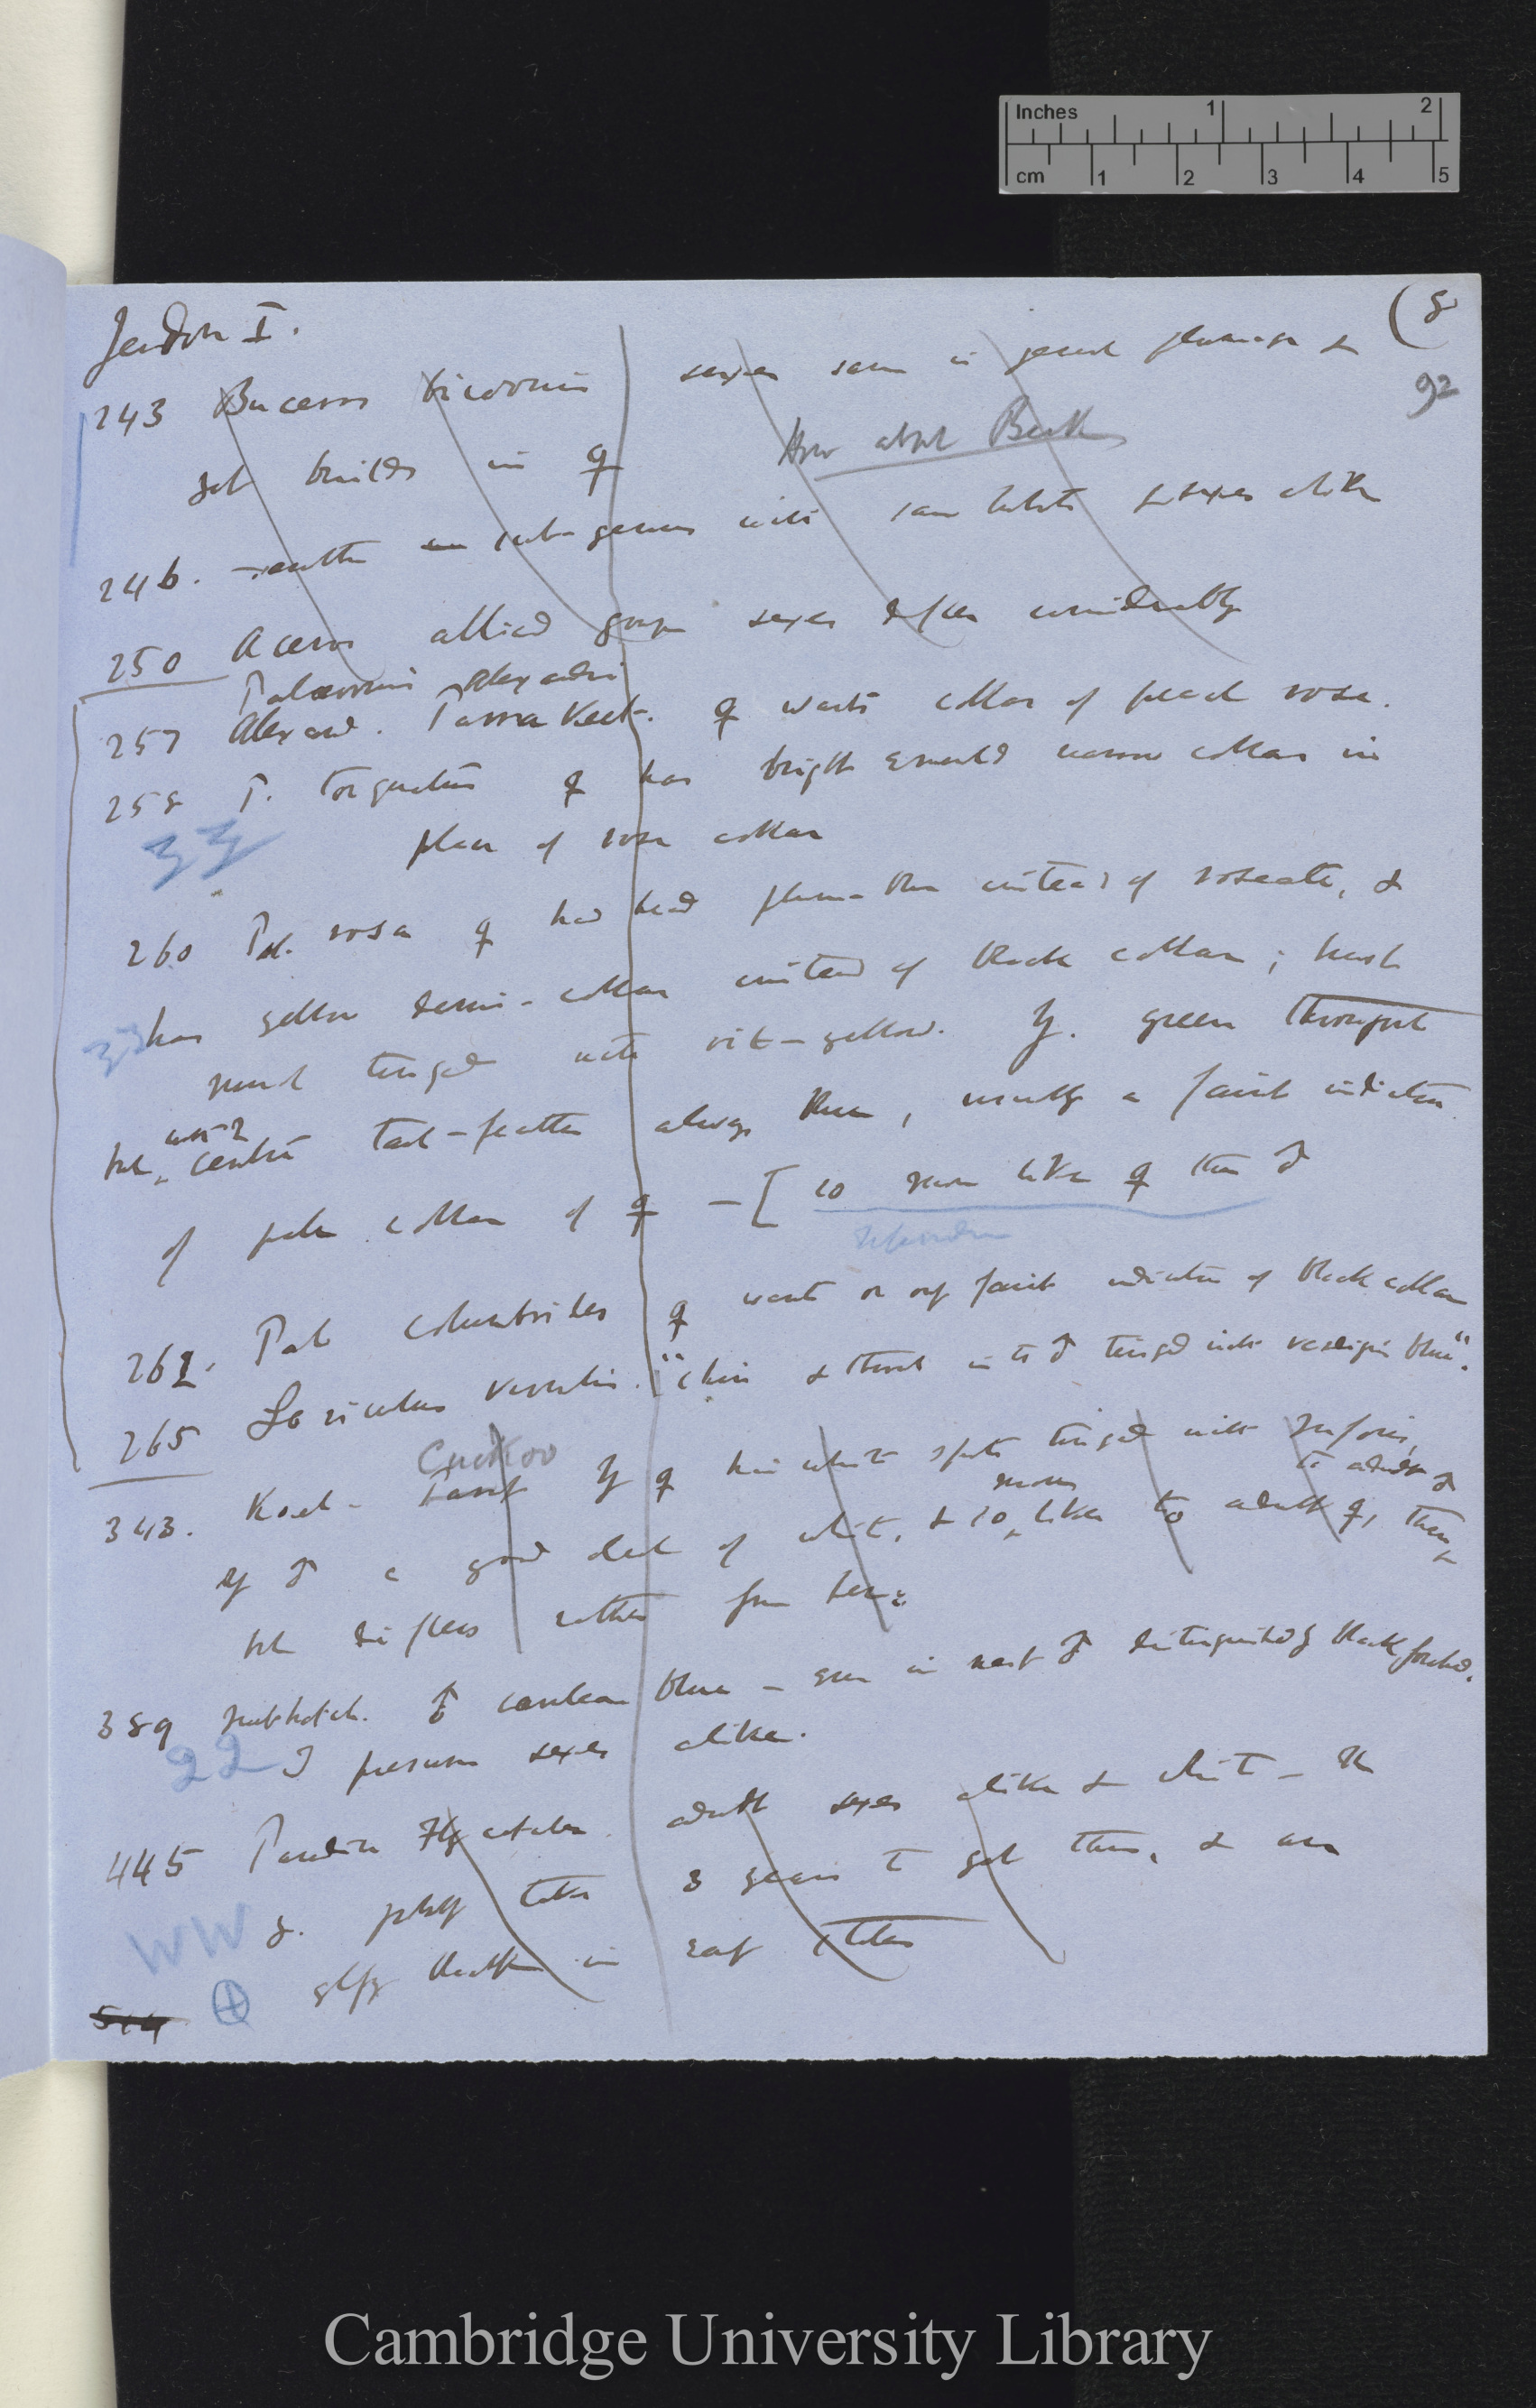 Inches 1 2
cm 1 2 3 4 5
Jerdon I.
(8
92
243 Buceros bicornis sexes same in general plumage &
yet builds in ♀ How about Beak
246. another sub-genus with same habits & sexes alike
250 Aceros allied group sexes differ considerably
Palæornis Alexandri
257 Alexand. Parrakeet. ♀ wants collar of peach rose.
258 P. torquatus ♀ has bright emerald narrow collar in
33 place of rose collar
260 Pal. rosa ♀ has head plum-blue instead of roseate, &
33 has yellow demi-collar instead of black collar; much
tinged with yellow. Y. green throughout
but, centre tail-feather always blue, usually a faint indication
of pale collar of ♀ — [so more like ♀ than ♂
262. Pal columboides ♀ wants or only faint indication of black collar
265 Loriculus vernalis. "chin & throat in the ♂ tinged with blue".
Cuckoo
343. Koel - Y ♀ has white spots tinged with rufous,
more
to adult ♂
y ♂ a good deal of white, & so like to adult ♀, than
but differs rather from her.
389 nuthatch. ♂ cærulean blue — even in nest ♂ distinguished by black forehead.
22 I presume sexes alike.
445 Paradise Flycatcher adult sexes alike & white — the
WW y. takes 3 years to get this, & are
in early states
514